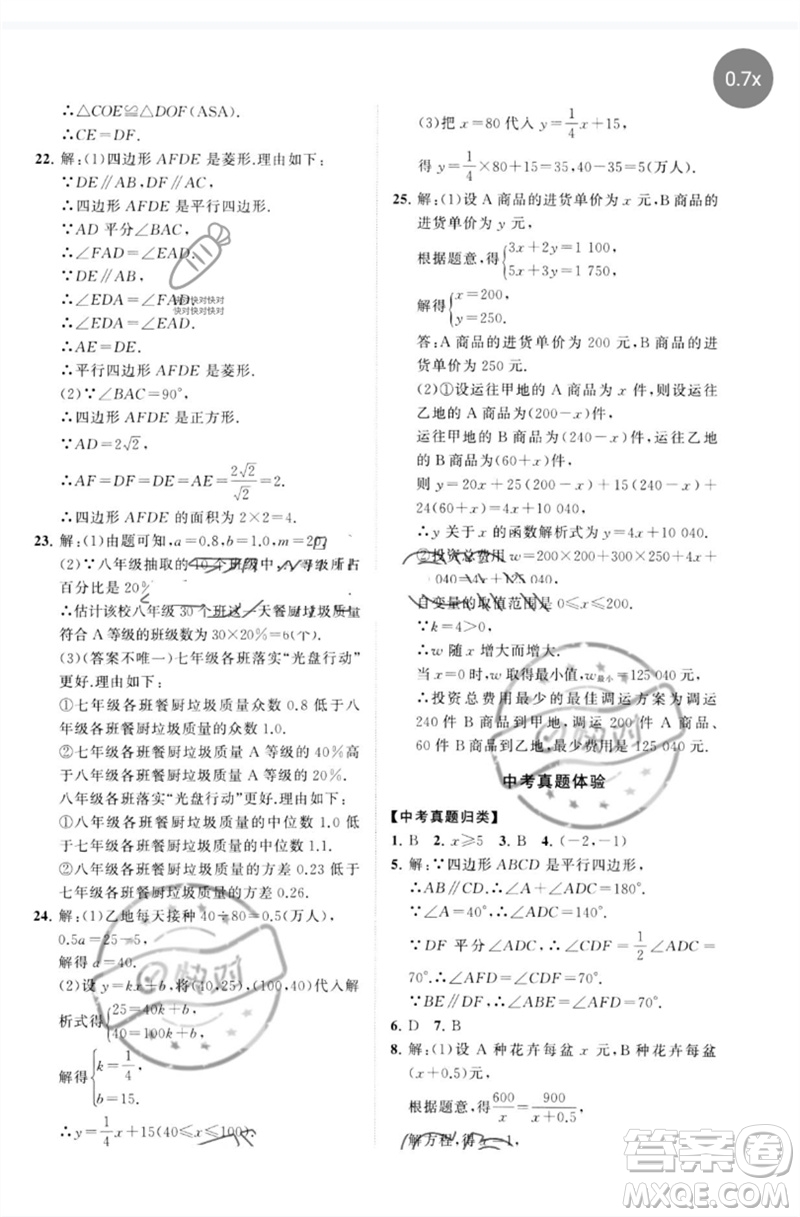 0.7x
∴△COE≌△DOF(ASA).
∴CE=DF.
22. 解:(1)四边形 AFDE 是菱形.理由如下:
∵DE∥AB,DF∥AC,
∴四边形 AFDE 是平行四边形.
∵AD 平分∠BAC,
∴∠FAD=∠EAD.
∵DE∥AB,
∴∠EDA=∠FAD.
∴∠EDA=∠EAD.
∴AE=DE.
∴平行四边形 AFDE 是菱形.
(2)∵∠BAC=90°,
∴四边形 AFDE 是正方形.
∵AD=2√2,
∴AF=DF=DE=AE=2√2/√2=2.
∴四边形 AFDE 的面积为 2×2=4.
23. 解:(1)由题可知,a=0.8,b=1.0,m=20.
(2)∵八年级抽取的 10 个班级中,A 等级所占
百分比是 20%
∴估计该校八年级 30 个班这一天餐厨垃圾质量
符合 A 等级的班级数为 30×20%=6(个).
(3)(答案不唯一)七年级各班落实“光盘行动”
更好.理由如下:
①七年级各班餐厨垃圾质量众数 0.8 低于八
年级各班餐厨垃圾质量的众数 1.0.
②七年级各班餐厨垃圾质量 A 等级的 40%高
于八年级各班餐厨垃圾质量 A 等级的 20%.
八年级各班落实“光盘行动”更好.理由如下:
①八年级各班餐厨垃圾质量的中位数 1.0 低于
七年级各班餐厨垃圾质量的中位数 1.1.
②八年级各班餐厨垃圾质量的方差 0.23 低于
七年级各班餐厨垃圾质量的方差 0.26.
24. 解:(1)乙地每天接种 40÷80=0.5(万人),
0.5a=25-5,
解得 a=40.
(2)设 y=kx+b,将(40,25),(100,40)代入解
析式得{25=40k+b,
40=100k+b,
解得{k=1/4,
b=15.
∴y=1/4x+15(40≤x≤100).
(3)把 x=80 代入 y=1/4x+15,
得 y=1/4×80+15=35,40-35=5(万人).
25. 解:(1)设 A 商品的进货单价为 x 元,B 商品的
进货单价为 y 元,
根据题意,得{3x+2y=1 100,
5x+3y=1 750,
解得{x=200,
y=250.
答:A 商品的进货单价为 200 元,B 商品的进货
单价为 250 元.
(2)①设运往甲地的 A 商品为 x 件,则设运往
乙地的 A 商品为(200-x)件,
运往甲地的 B 商品为(240-x)件,运往乙地
的 B 商品为(60+x)件,
则 y=20x+25(200-x)+15(240-x)+
24(60+x)=4x+10 040,
∴y 关于 x 的函数解析式为 y=4x+10 040.
②投资总费用 w=200×200+300×250+4x+
040=4x+125 040,
自变量的取值范围是 0≤x≤200.
∵k=4>0,
∴w 随 x 增大而增大.
当 x=0 时,w 取得最小值,w最小=125 040.
∴投资总费用最少的最佳调运方案为调运
240 件 B 商品到甲地,调运 200 件 A 商品、
60 件 B 商品到乙地,最少费用是 125 040 元.
中考真题体验
【中考真题归类】
1. B 2. x≥5 3. B 4. (-2,-1)
5. 解:∵四边形 ABCD 是平行四边形,
∴AB∥CD.∴∠A+∠ADC=180°.
∵∠A=40°,∴∠ADC=140°.
∵DF 平分∠ADC,∴∠CDF=1/2∠ADC=
70°.∴∠AFD=∠CDF=70°.
∵BE∥DF,∴∠ABE=∠AFD=70°.
6. D 7. B
8. 解:(1)设 A 种花卉每盆 x 元,B 种花卉每盆
(x+0.5)元,
根据题意,得600/x=900/(x+0.5),
解方程,得 x=1,
快对快对快对
快对快对快对
快对
快对
MXQE.COM